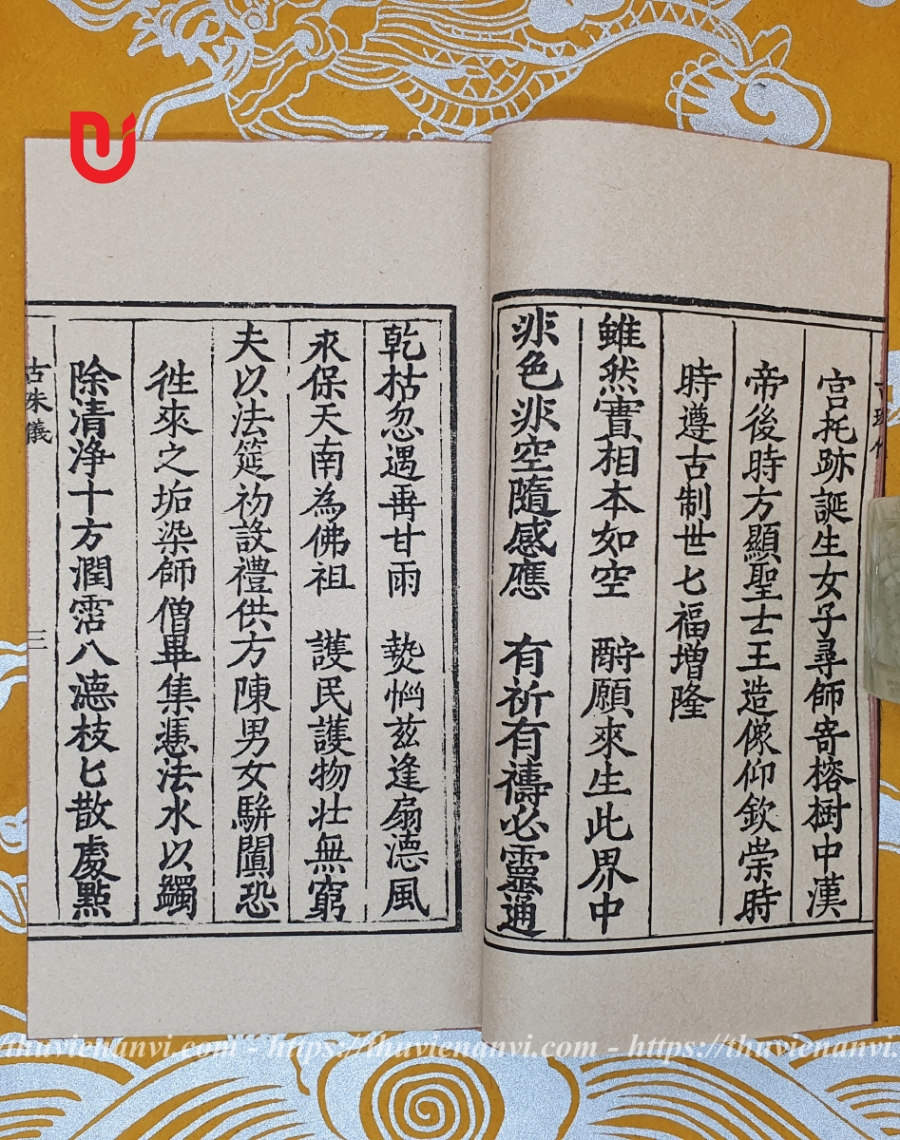 宫托跡誕生女子尋師寄榕樹中漢
帝後時方顯聖士王造像仰欽崇時
時遵古制世匕福增隆
雖然實相本如空　酧願來生此界中
非色非空隨感應　有祈有禱必靈通
乾枯忽遇甘雨　惱兹逢扇德風
永保天南為佛祖　護民護物壮無窮
夫以法筵初設禮供方陳男女駢闐恐
徃來之垢染師僧畢集慿法水以蠲
除清浄十方潤霑八德枝匕散處點
古珠儀　三
thuvienanvi.com - https://thuvienanvi.com - https://thuvienanvi.